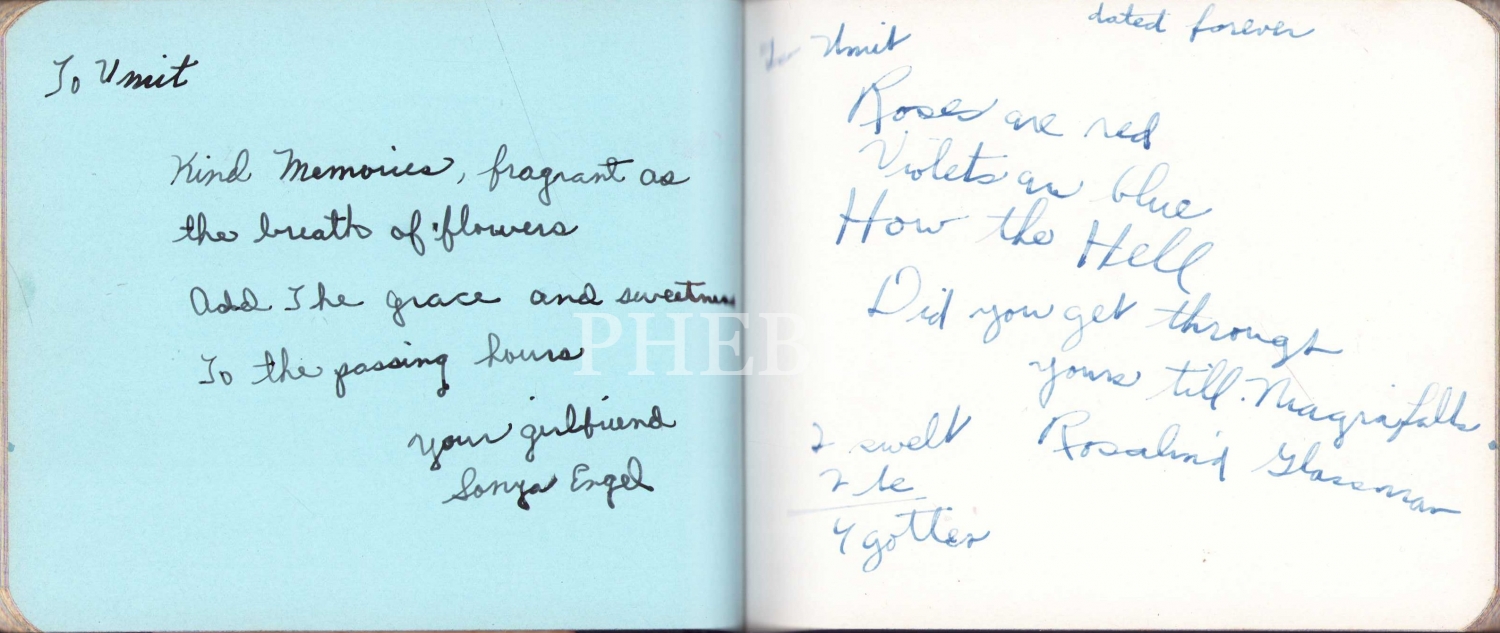 To Umit
Kind Memories, fragrant as
the breath of flowers
Add The grace and sweetness
To the passing hours
your girlfriend
Sonya Engel
dated forever
To Umit
Roses are red
Violets are blue
How the Hell
Did you get through
yours till Niagra falls
Rosalind Glassman
2 swelt
2 be
4 gotten
PHEB